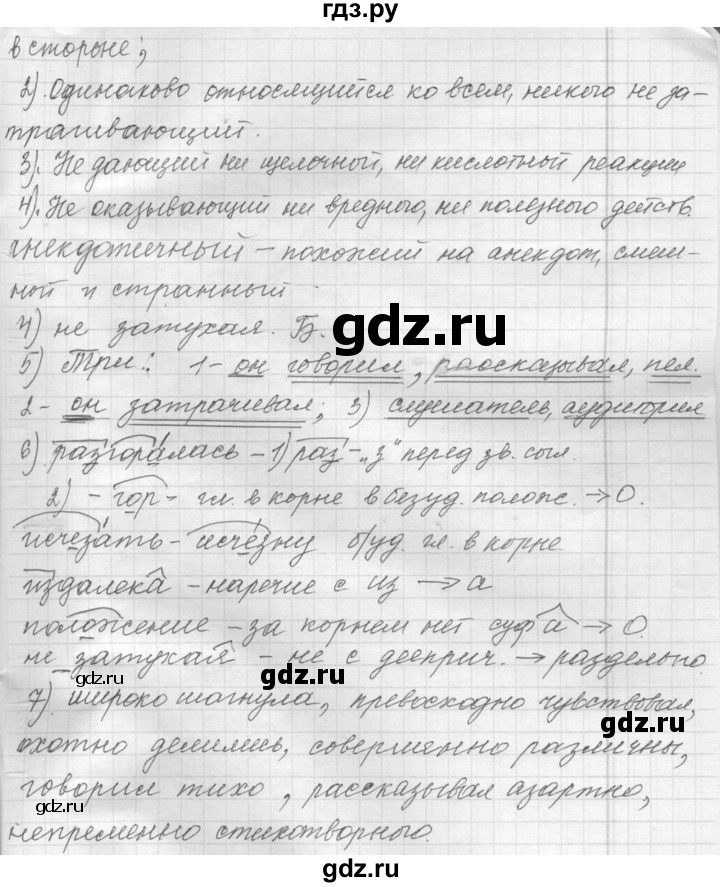 гдз.ру
в стороне;
2) Одинаково относящийся ко всем, никого не за-
трагивающий.
3). Не дающий ни щелочной, ни кислотной реакции
4). Не оказывающий ни вредного, ни полезного действ.
Анекдотичный – похожий на анекдот, смеш-
ной и странный.
4) не затухая. Б.
5) Три: 1- он говорил, рассказывал, пел.
2- он затрачивал; 3) слушатель, аудитория
6) разгоралась – 1) раз- „з" перед зв. согл.
2) -гор- гл. в корне в безуд. полож. → О.
исчезать – исчезну б/уд. гл. в корне
издалека – наречие с из → а
положение – за корнем нет суф а → О.
не затухая – не с дееприч. → раздельно
7) широко шагнула, превосходно чувствовал,
охотно делились, совершенно различны,
говорил тихо, рассказывал азартно,
непременно стихотворного.
gdz.ru
gdz.ru
gdz.ru
gdz.ru
gdz.ru
gdz.ru
gdz.ru